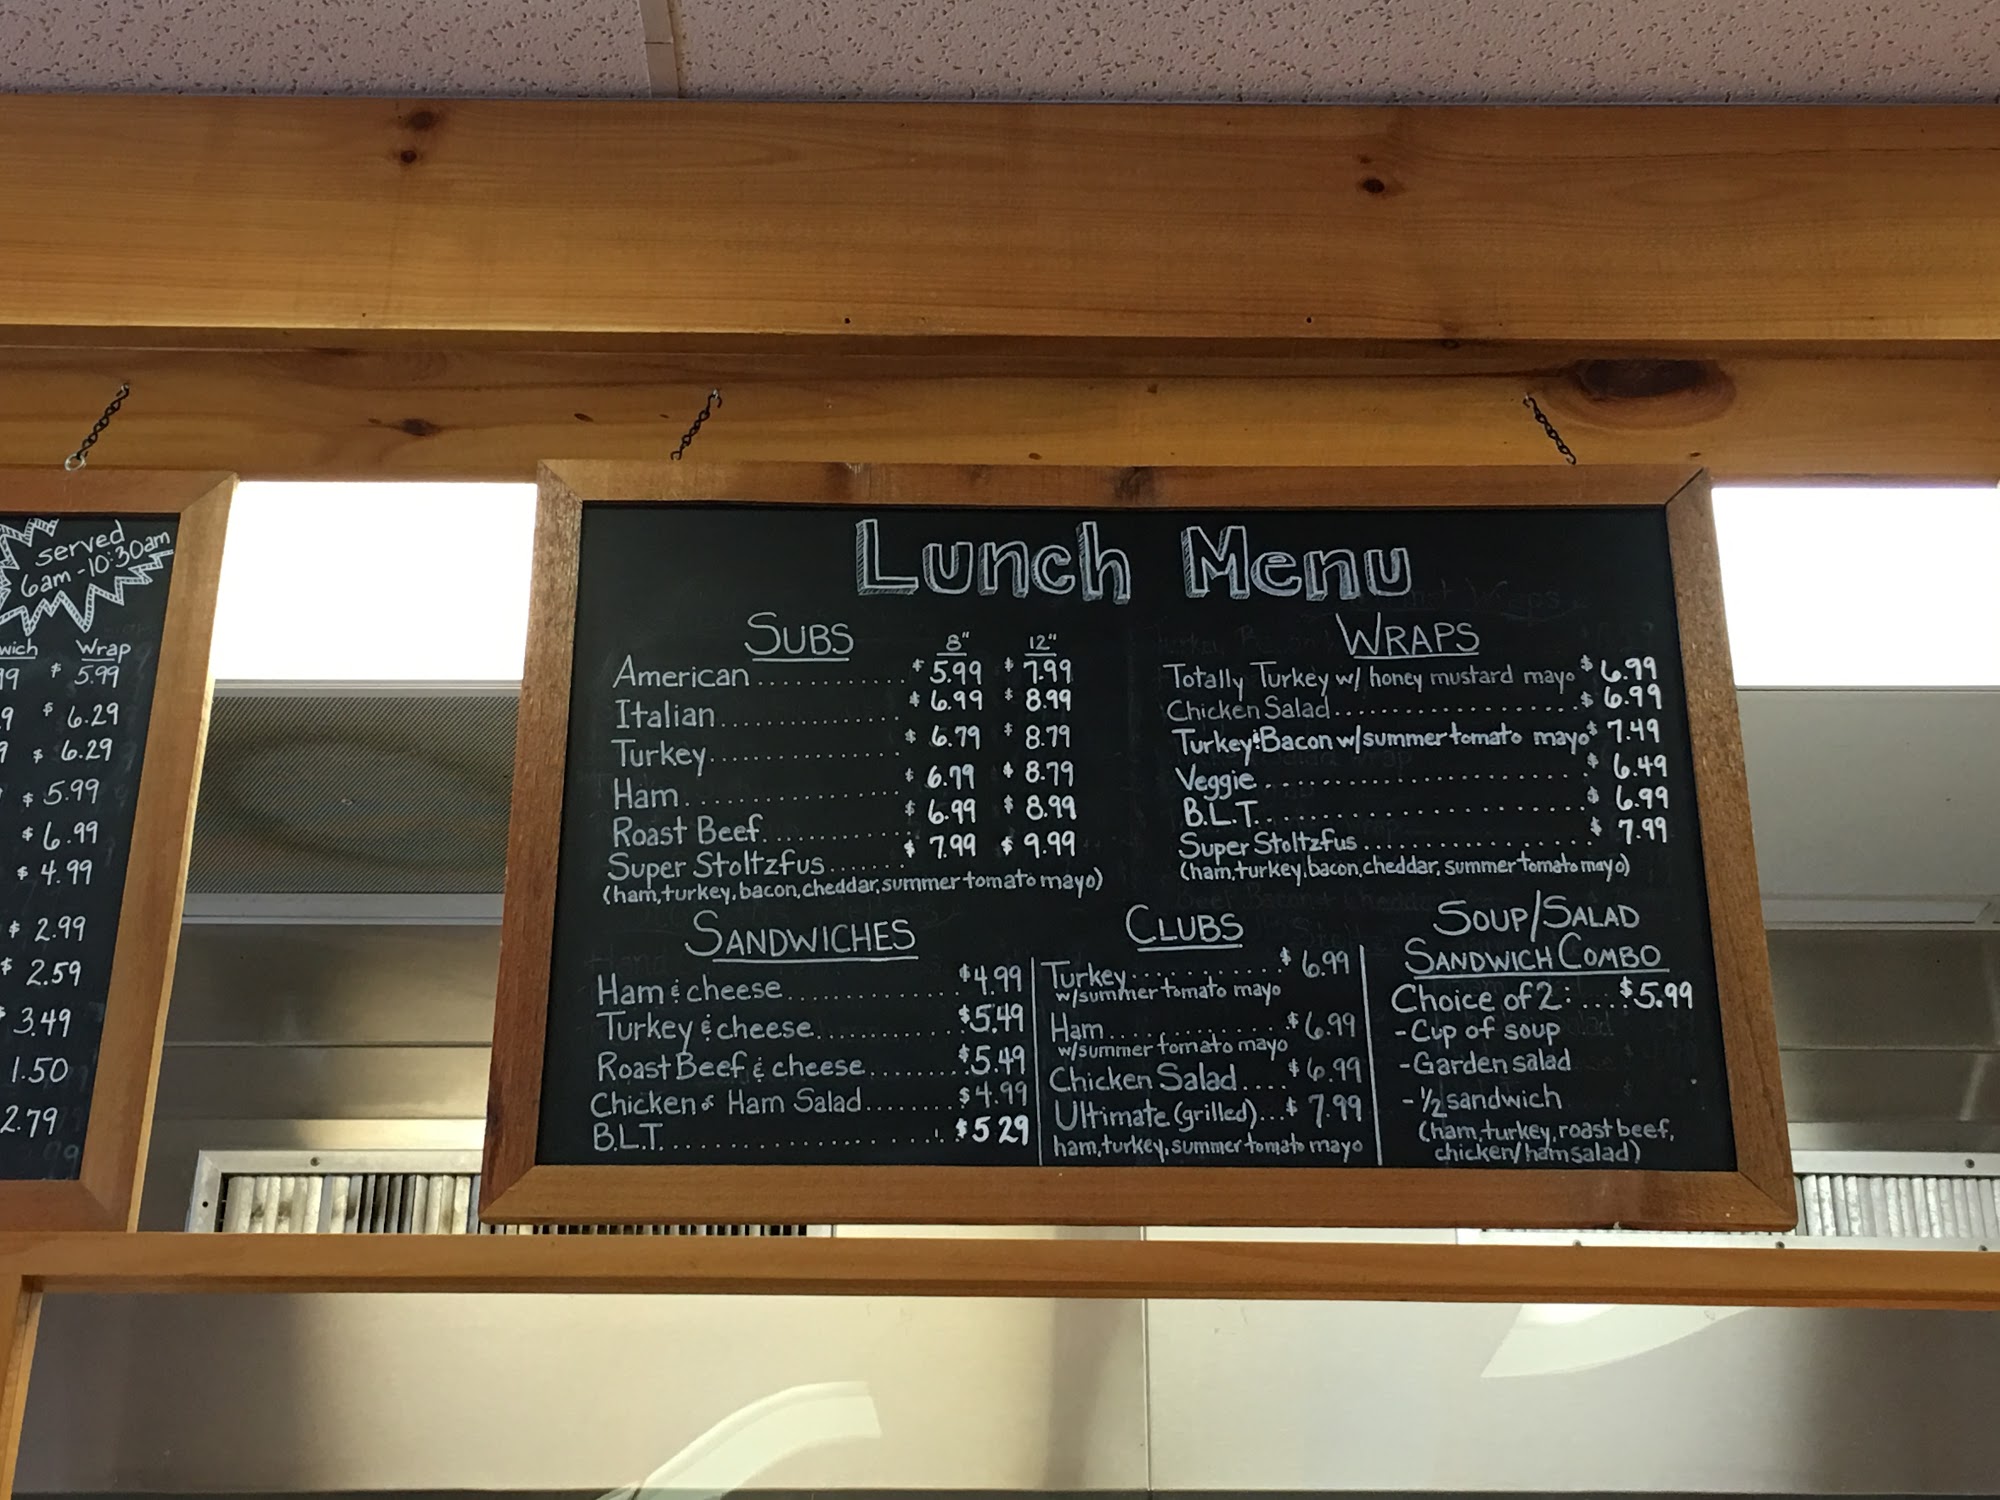 served
6am-10:30am
wich Wrap
99 $ 5.99
9 $ 6.29
9 $ 6.29
$ 5.99
$ 6.99
$ 4.99
$ 2.99
$ 2.59
$ 3.49
1.50
2.79
Lunch Menu
SUBS 8" 12"
American............. $ 5.99 $ 7.99
Italian.................. $ 6.99 $ 8.99
Turkey.................. $ 6.79 $ 8.79
Ham..................... $ 6.79 $ 8.79
Roast Beef............. $ 6.99 $ 8.99
Super Stoltzfus...... $ 7.99 $ 9.99
(ham, turkey, bacon, cheddar, summer tomato mayo)
WRAPS
Totally Turkey w/ honey mustard mayo $ 6.99
Chicken Salad..................... $ 6.99
Turkey & Bacon w/summer tomato mayo $ 7.49
Veggie............................. $ 6.49
B.L.T.............................. $ 6.99
Super Stoltzfus................... $ 7.99
(ham, turkey, bacon, cheddar, summer tomato mayo)
SANDWICHES
Ham & cheese............... $4.99
Turkey & cheese............ $5.49
Roast Beef & cheese........ $5.49
Chicken or Ham Salad....... $4.99
B.L.T....................... $5 29
CLUBS
Turkey............ $ 6.99
w/summer tomato mayo
Ham............... $ 6.99
w/summer tomato mayo
Chicken Salad.... $ 6.99
Ultimate (grilled)... $ 7.99
ham, turkey, summer tomato mayo
SOUP/SALAD
SANDWICH COMBO
Choice of 2:.... $5.99
-Cup of soup
-Garden salad
-1/2 sandwich
(ham, turkey, roast beef,
chicken/ham salad)